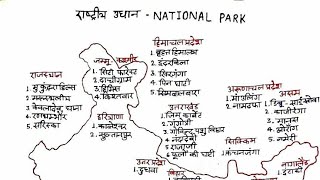 राष्ट्रीय उधान - NATIONAL PARK
हिमाचल प्रदेश
1. ग्रेट हिमालय
2. इंदरकिला
3. खिरगंगा
4. पिन घाटी
5. सिंबलबारा
जम्मू कश्मीर
1. सिटी फॉरेस्ट
2. दाचीग्राम
3. हेमिस
4. किश्तवार
राजस्थान
1. मुकुन्दरा हिल्स
2. मरुस्थलीय
3. केवलादेव घाना
4. रणथम्भौर
5. सरिस्का
हरियाणा
1. कालेसर
2. सुल्तानपुर
उत्तराखंड
1. जिम कार्बेट
2. गंगोत्री
3. गोविन्द पशु विहार
4. नंदादेवी
5. राजाजी
6. फूलों की घाटी
उत्तर प्रदेश
1. दुधवा
बिहार
सिक्किम
1. कंचनजंगा
अरूणाचल प्रदेश
1. मौउलिंग
2. नामदफा
असम
1. डिब्रू - साईखोवा
2. काजीरंगा
3. मानस
4. नामेरी
5. ओरांग
नागालैंड
1. इंटाकी